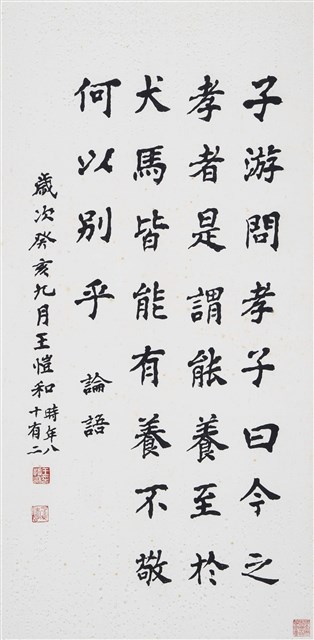 子游問孝子曰今之
孝者是謂能養至於
犬馬皆能有養不敬
何以别乎 論語
歲次癸亥九月王愷和時年八
十有二